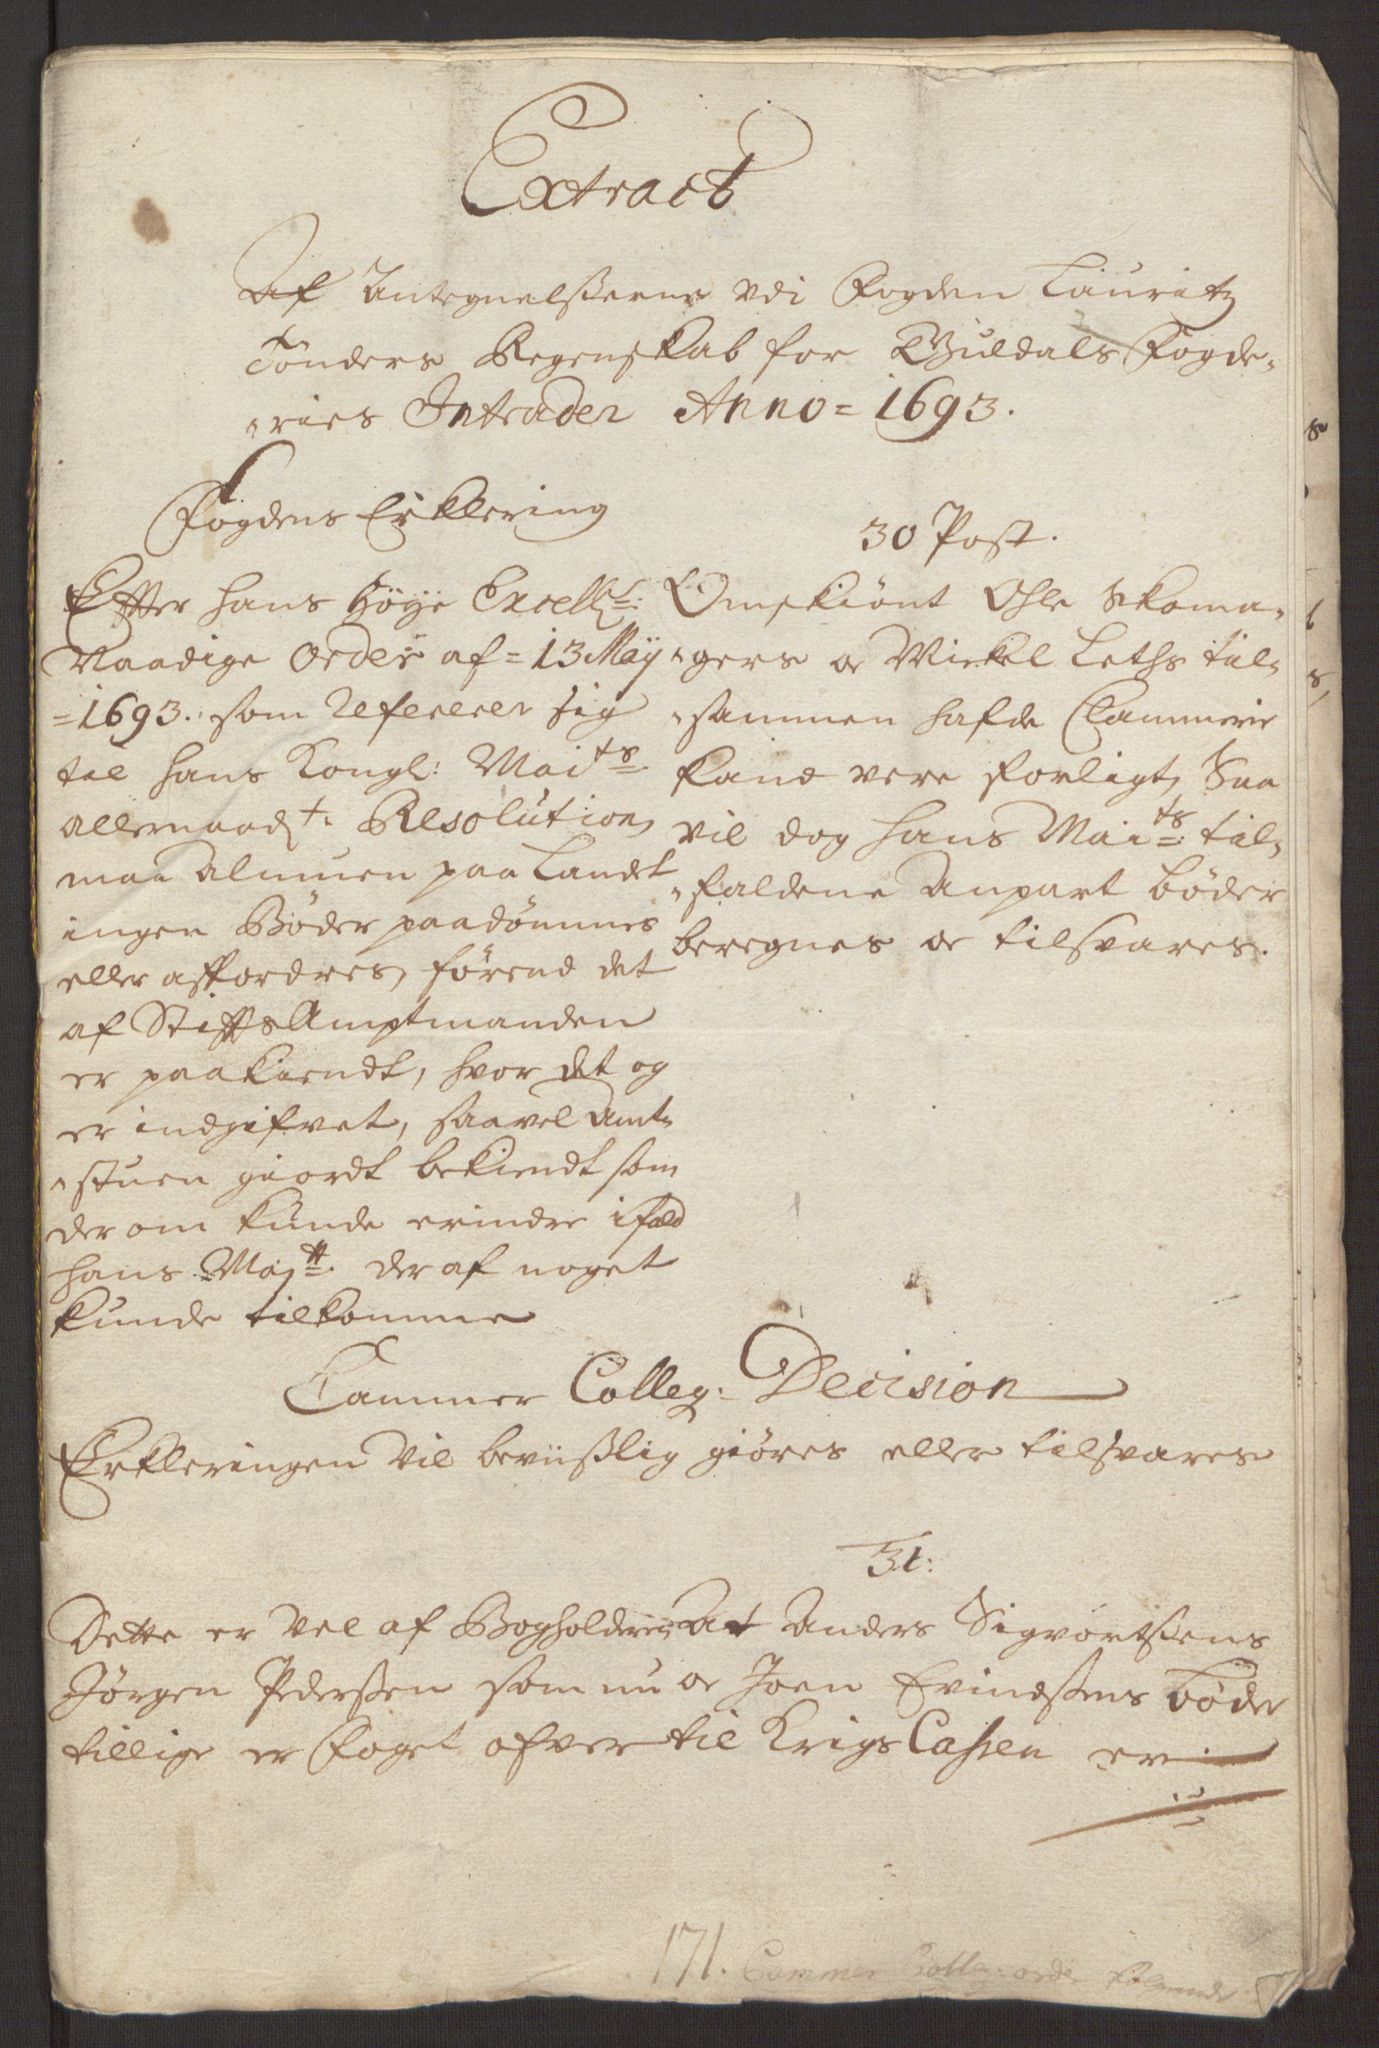 Extract
Af Antegnelsserne Vdi Fogden Lauritz
Tønders Regenskab for Guldals Fogde-
ries Intrader Anno = 1693.
Fogdens Erklering
Effter hans Höÿe Excell:
Naadige Order af = 13 Maÿ
= 1693. som Refererer sig
til hans Kongl: Maits
allernaadt: Resolution
maa Almuen paa Landet
ingen Böder paadömmes
eller affordres, förend det
af StiftsAmptmanden
er paakiendt, hvor det og
er indgifvet, saavel Amt-
stuen giordt bekiendt som
der om kunde erindre ifald
hans Majtt. der af noget
kunde tilkomme
30 Post.
Omskiönt Ohle Skoma-
gers oc Mickel Leths til-
sammen hafde Clammerie
kand vere forligt, Saa
vil dog hans Maits: til-
faldene Anpart böder
beregnes oc tilsvares.
Cammer Colleg. Decision
Erkleringen Vil beviißlig giöres eller tilsvares
31.
Dette er Vel af Bogholderen At Anders Sigvortsens
Jörgen Pederßen som nu oc Joen Evindsens böder
tillige er Foget ofver til Krigs Cassen er
171. Cammer Colleg: order følgende